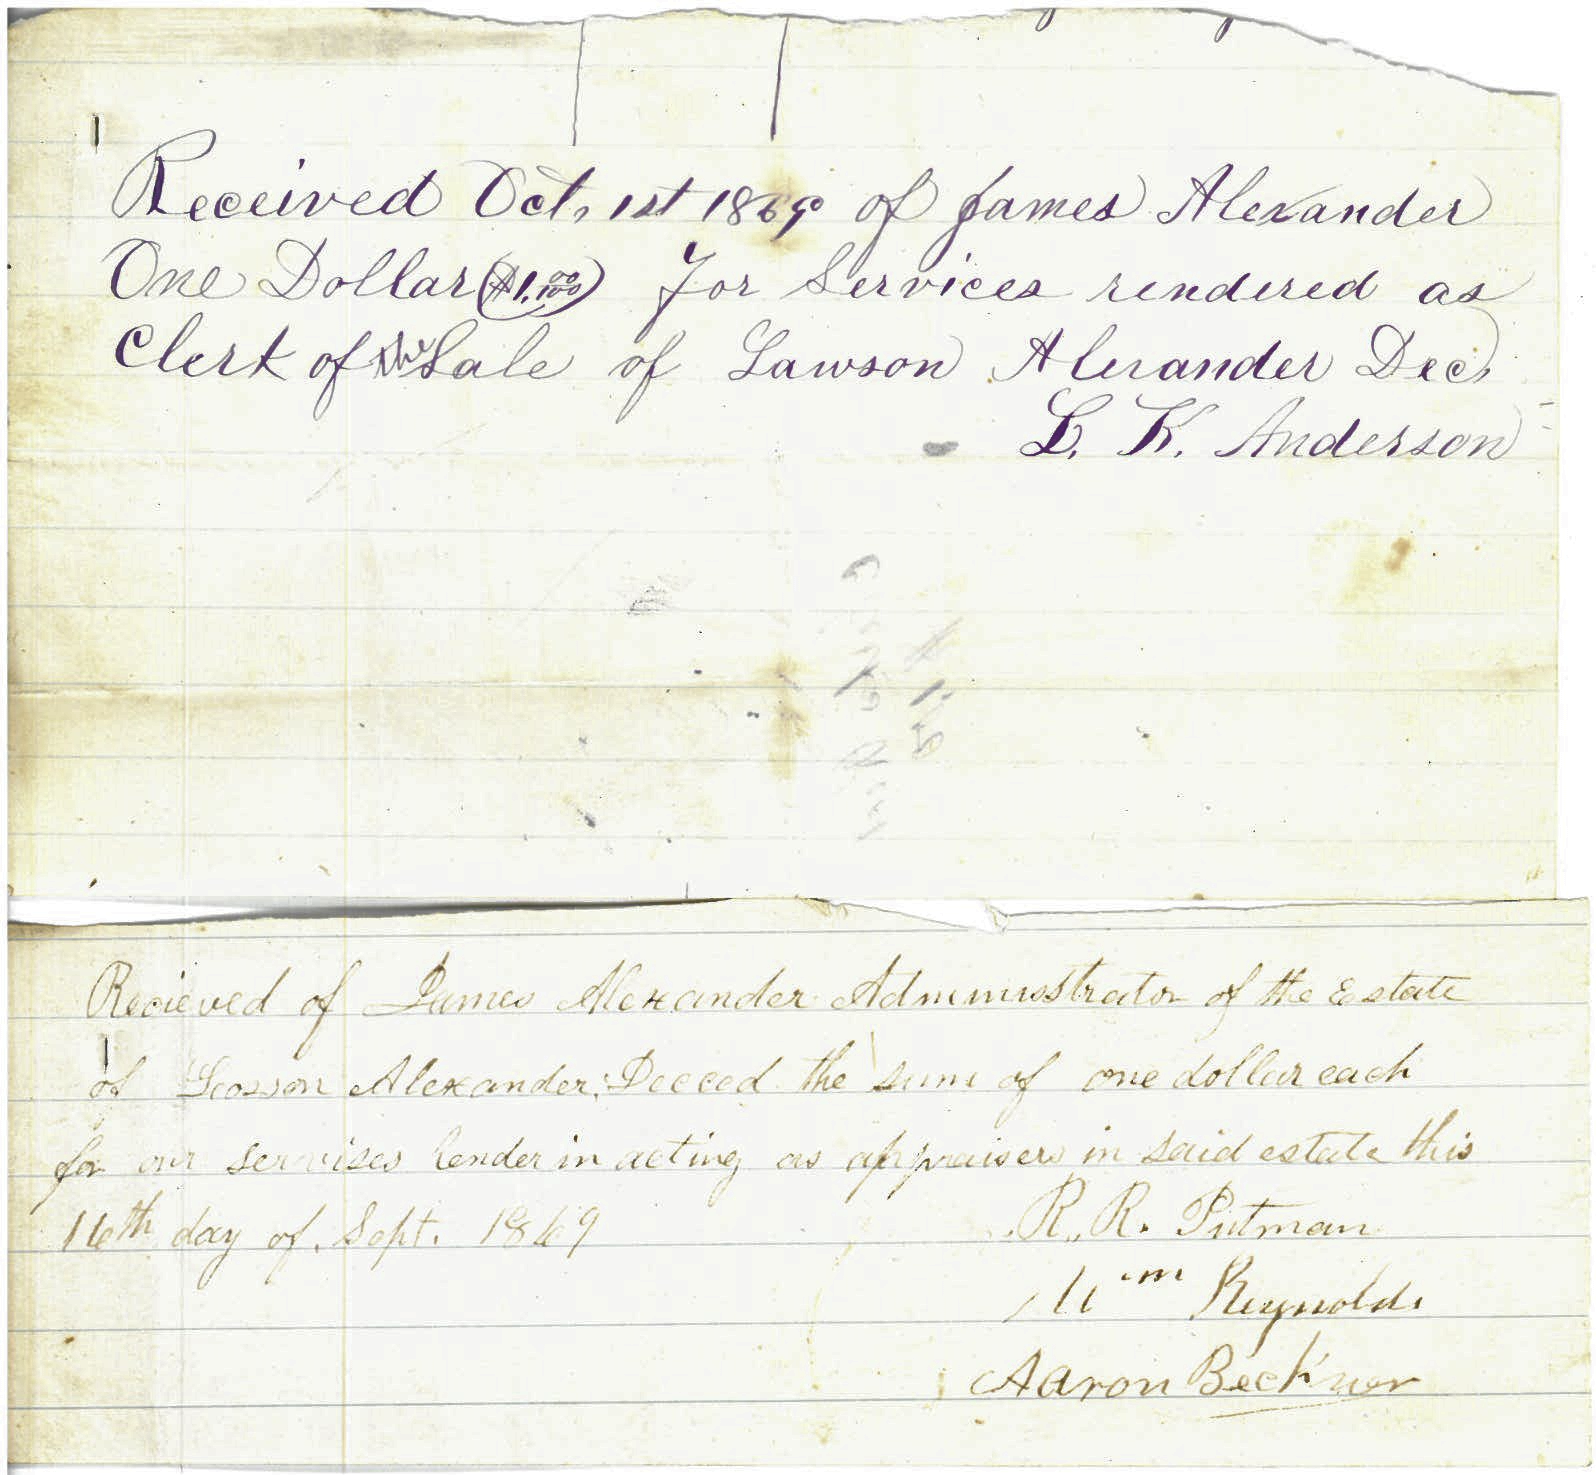 Received Oct, 1st 1869 of James Alexander
One Dollar ($1.00/100) For Services rendered as
Clerk of Sale of Lawson Alexander Dec,
L. K. Anderson
Recieved of James Alexander Administrator of the Estate
of Losson Alexander Deceed the sum of one dollar each
for our servises render in acting as appraisers in said estate this
16th day of. Sept. 1869
R. R. Putman
Wm Reynolds
Aaron Beckner